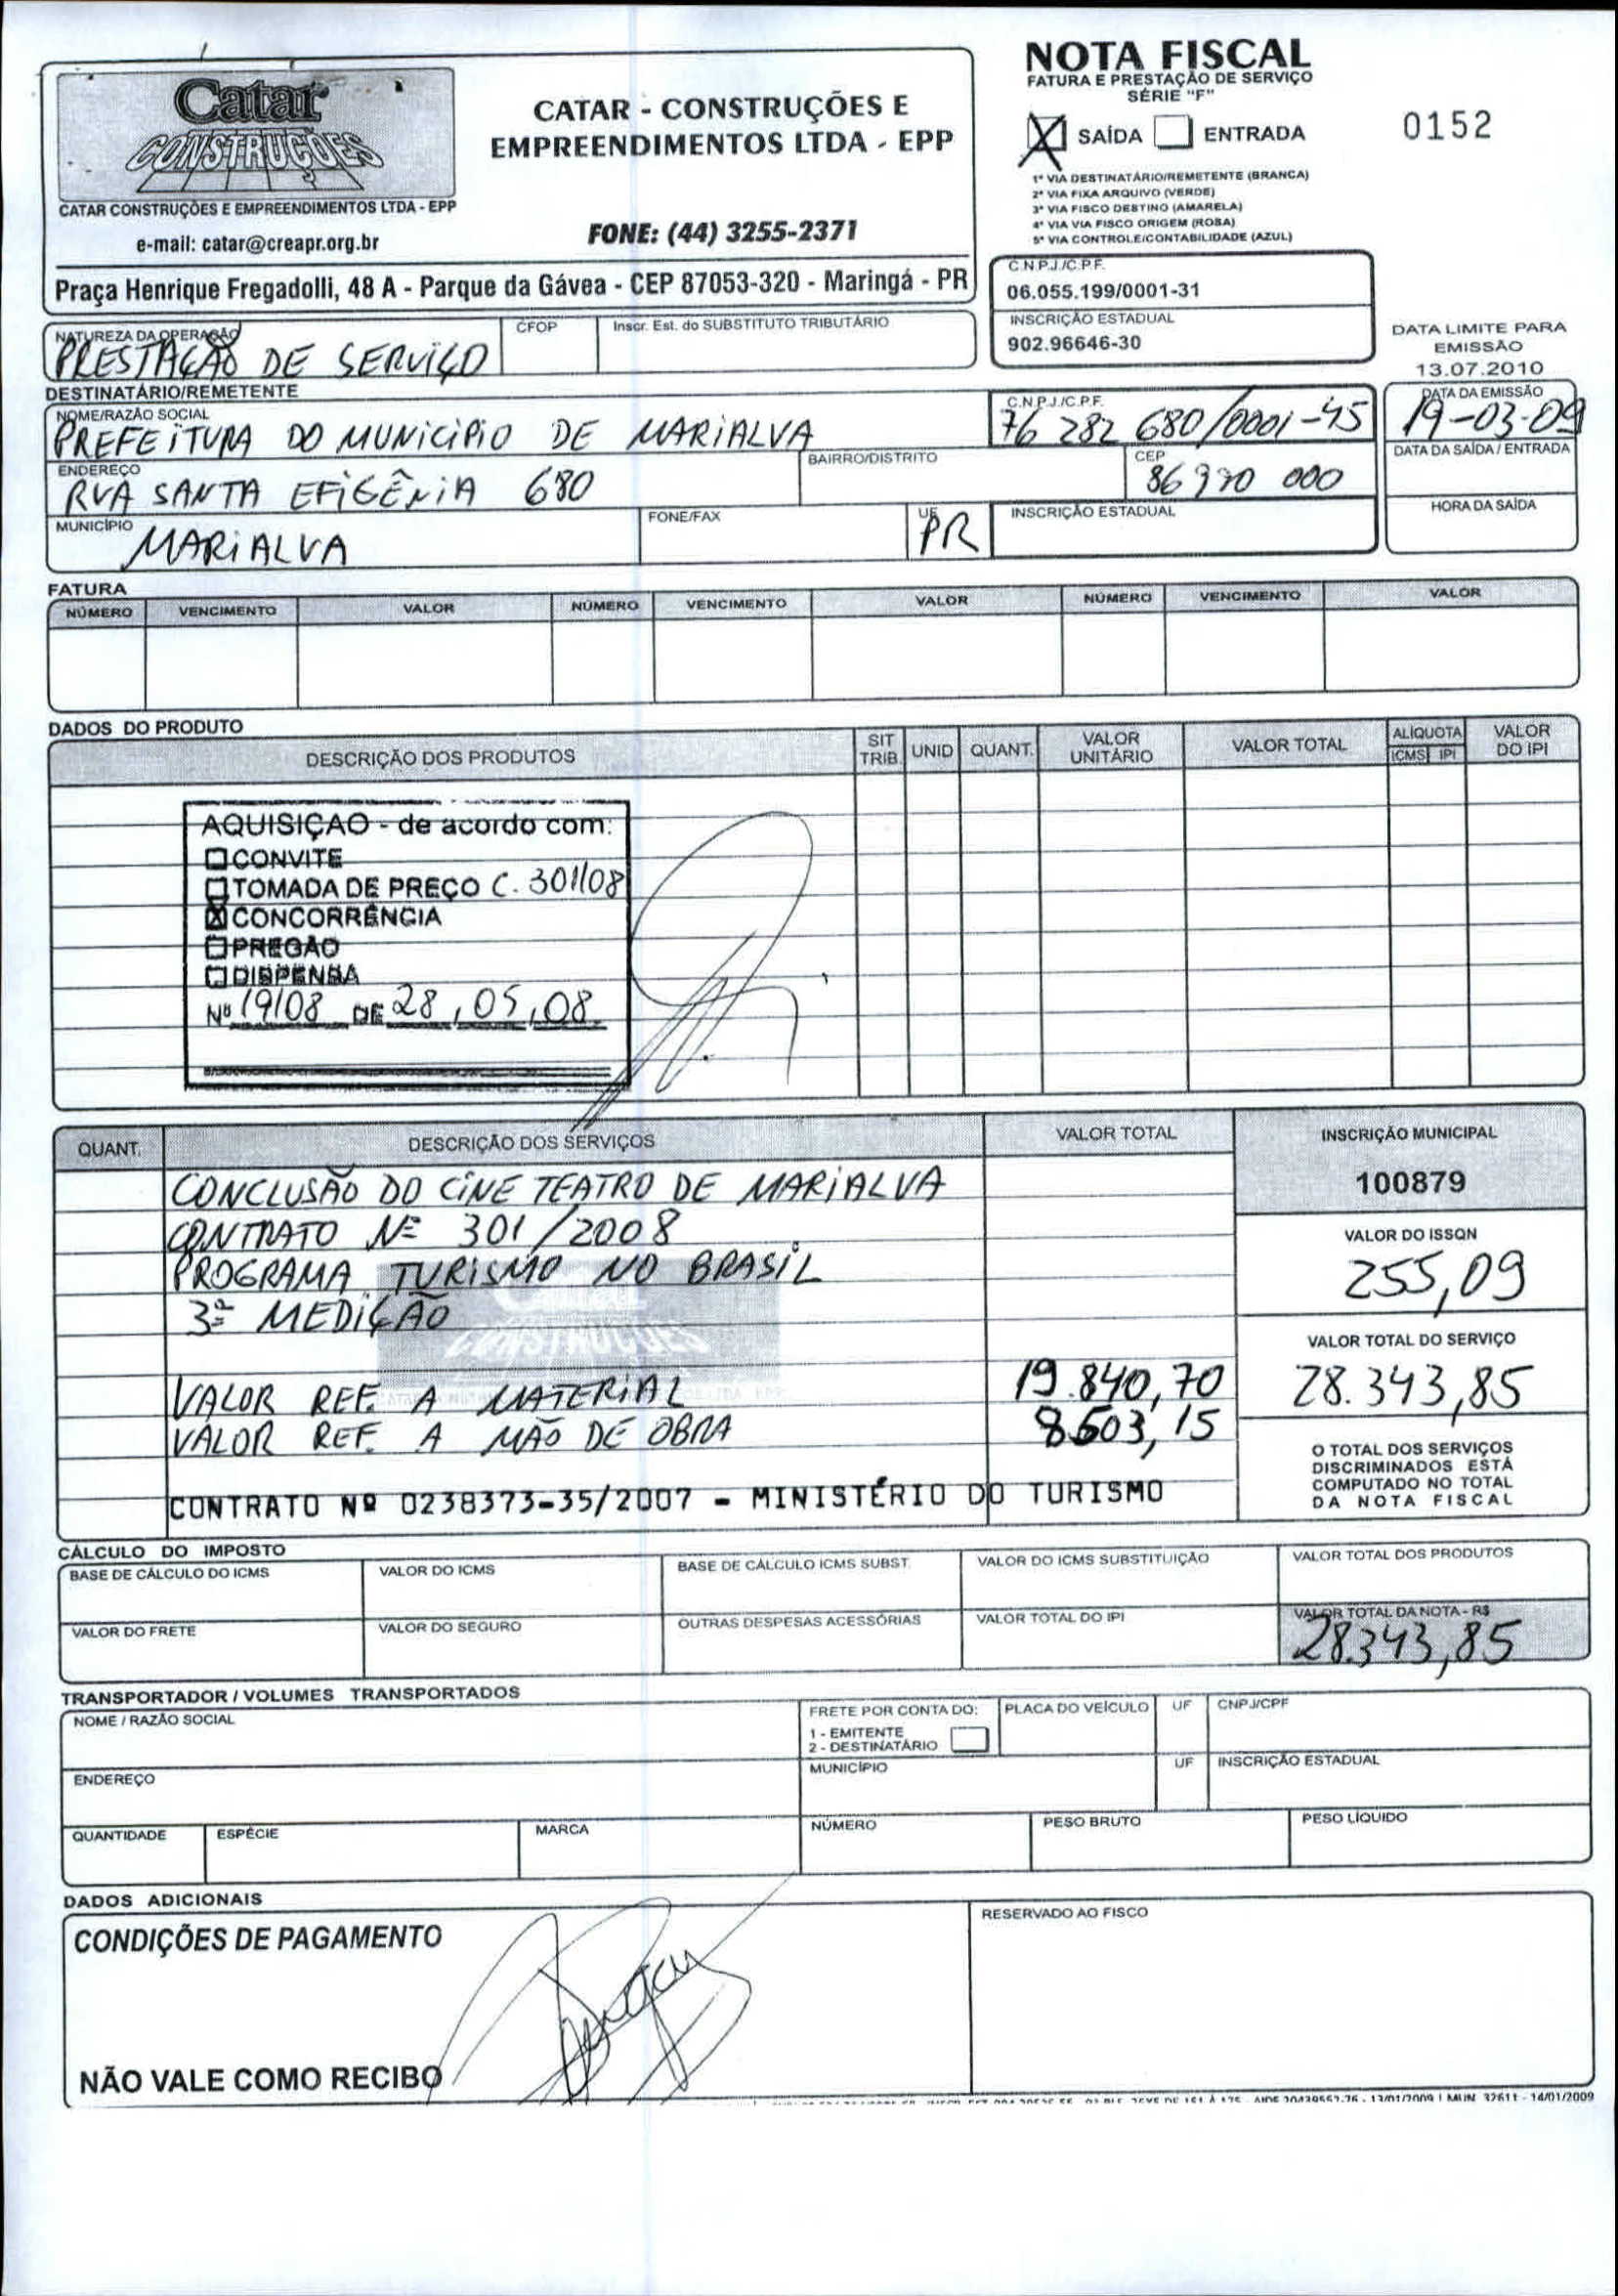 Catar
CONSTRUÇÕES
CATAR CONSTRUÇÕES E EMPREENDIMENTOS LTDA - EPP
e-mail: catar@creapr.org.br
CATAR - CONSTRUÇÕES E
EMPREENDIMENTOS LTDA - EPP
FONE: (44) 3255-2371
Praça Henrique Fregadolli, 48 A - Parque da Gávea - CEP 87053-320 - Maringá - PR
NOTA FISCAL
FATURA E PRESTAÇÃO DE SERVIÇO
SÉRIE "F"
X SAÍDA ENTRADA
0152
1ª VIA DESTINATÁRIO/REMETENTE (BRANCA)
2ª VIA FIXA ARQUIVO (VERDE)
3ª VIA FISCO DESTINO (AMARELA)
4ª VIA VIA FISCO ORIGEM (ROSA)
5ª VIA CONTROLE/CONTABILIDADE (AZUL)
C.N.P.J./C.P.F.
06.055.199/0001-31
INSCRIÇÃO ESTADUAL
902.96646-30
DATA LIMITE PARA
EMISSÃO
13.07.2010
NATUREZA DA OPERAÇÃO
PRESTAÇÃO DE SERVIÇO
CFOP
Inscr. Est. do SUBSTITUTO TRIBUTÁRIO
DESTINATÁRIO/REMETENTE
NOME/RAZÃO SOCIAL
PREFEITURA DO MUNICIPIO DE MARIALVA
C.N.P.J./C.P.F.
76 282 680/0001-45
DATA DA EMISSÃO
19-03-09
ENDEREÇO
RUA SANTA EFIGÊNIA 680
BAIRRO/DISTRITO
CEP
86 990 000
DATA DA SAÍDA / ENTRADA
MUNICÍPIO
MARIALVA
FONE/FAX
UF
PR
INSCRIÇÃO ESTADUAL
HORA DA SAÍDA
FATURA
NÚMERO VENCIMENTO VALOR NÚMERO VENCIMENTO VALOR NÚMERO VENCIMENTO VALOR
DADOS DO PRODUTO
DESCRIÇÃO DOS PRODUTOS
SIT
TRIB.
UNID
QUANT.
VALOR
UNITÁRIO
VALOR TOTAL
ALÍQUOTA
ICMS IPI
VALOR
DO IPI
AQUISIÇAO - de acordo com:
CONVITE
TOMADA DE PREÇO C. 301/08
X CONCORRÊNCIA
PREGÃO
DISPENSA
Nº 19/08 DE 28, 05, 08
QUANT.
DESCRIÇÃO DOS SERVIÇOS
VALOR TOTAL
INSCRIÇÃO MUNICIPAL
100879
CONCLUSÃO DO CINE TEATRO DE MARIALVA
CONTRATO Nº 301/2008
PROGRAMA TURISMO NO BRASIL
3ª MEDIÇÃO
VALOR REF. A MATERIAL 19.840,70
VALOR REF. A MÃO DE OBRA 8.503,15
CONTRATO Nº 0238373-35/2007 - MINISTÉRIO DO TURISMO
VALOR DO ISSQN
255,09
VALOR TOTAL DO SERVIÇO
28.343,85
O TOTAL DOS SERVIÇOS
DISCRIMINADOS ESTÁ
COMPUTADO NO TOTAL
DA NOTA FISCAL
CÁLCULO DO IMPOSTO
BASE DE CÁLCULO DO ICMS
VALOR DO ICMS
BASE DE CÁLCULO ICMS SUBST.
VALOR DO ICMS SUBSTITUIÇÃO
VALOR TOTAL DOS PRODUTOS
VALOR DO FRETE
VALOR DO SEGURO
OUTRAS DESPESAS ACESSÓRIAS
VALOR TOTAL DO IPI
VALOR TOTAL DA NOTA - R$
28.343,85
TRANSPORTADOR / VOLUMES TRANSPORTADOS
NOME / RAZÃO SOCIAL
FRETE POR CONTA DO:
1 - EMITENTE
2 - DESTINATÁRIO
PLACA DO VEÍCULO
UF
CNPJ/CPF
ENDEREÇO
MUNICÍPIO
UF
INSCRIÇÃO ESTADUAL
QUANTIDADE
ESPÉCIE
MARCA
NÚMERO
PESO BRUTO
PESO LÍQUIDO
DADOS ADICIONAIS
CONDIÇÕES DE PAGAMENTO
NÃO VALE COMO RECIBO
RESERVADO AO FISCO
DE 151 À 175 - AIDF 20439552-76 - 13/01/2009 | MUN. 32611 - 14/01/2009